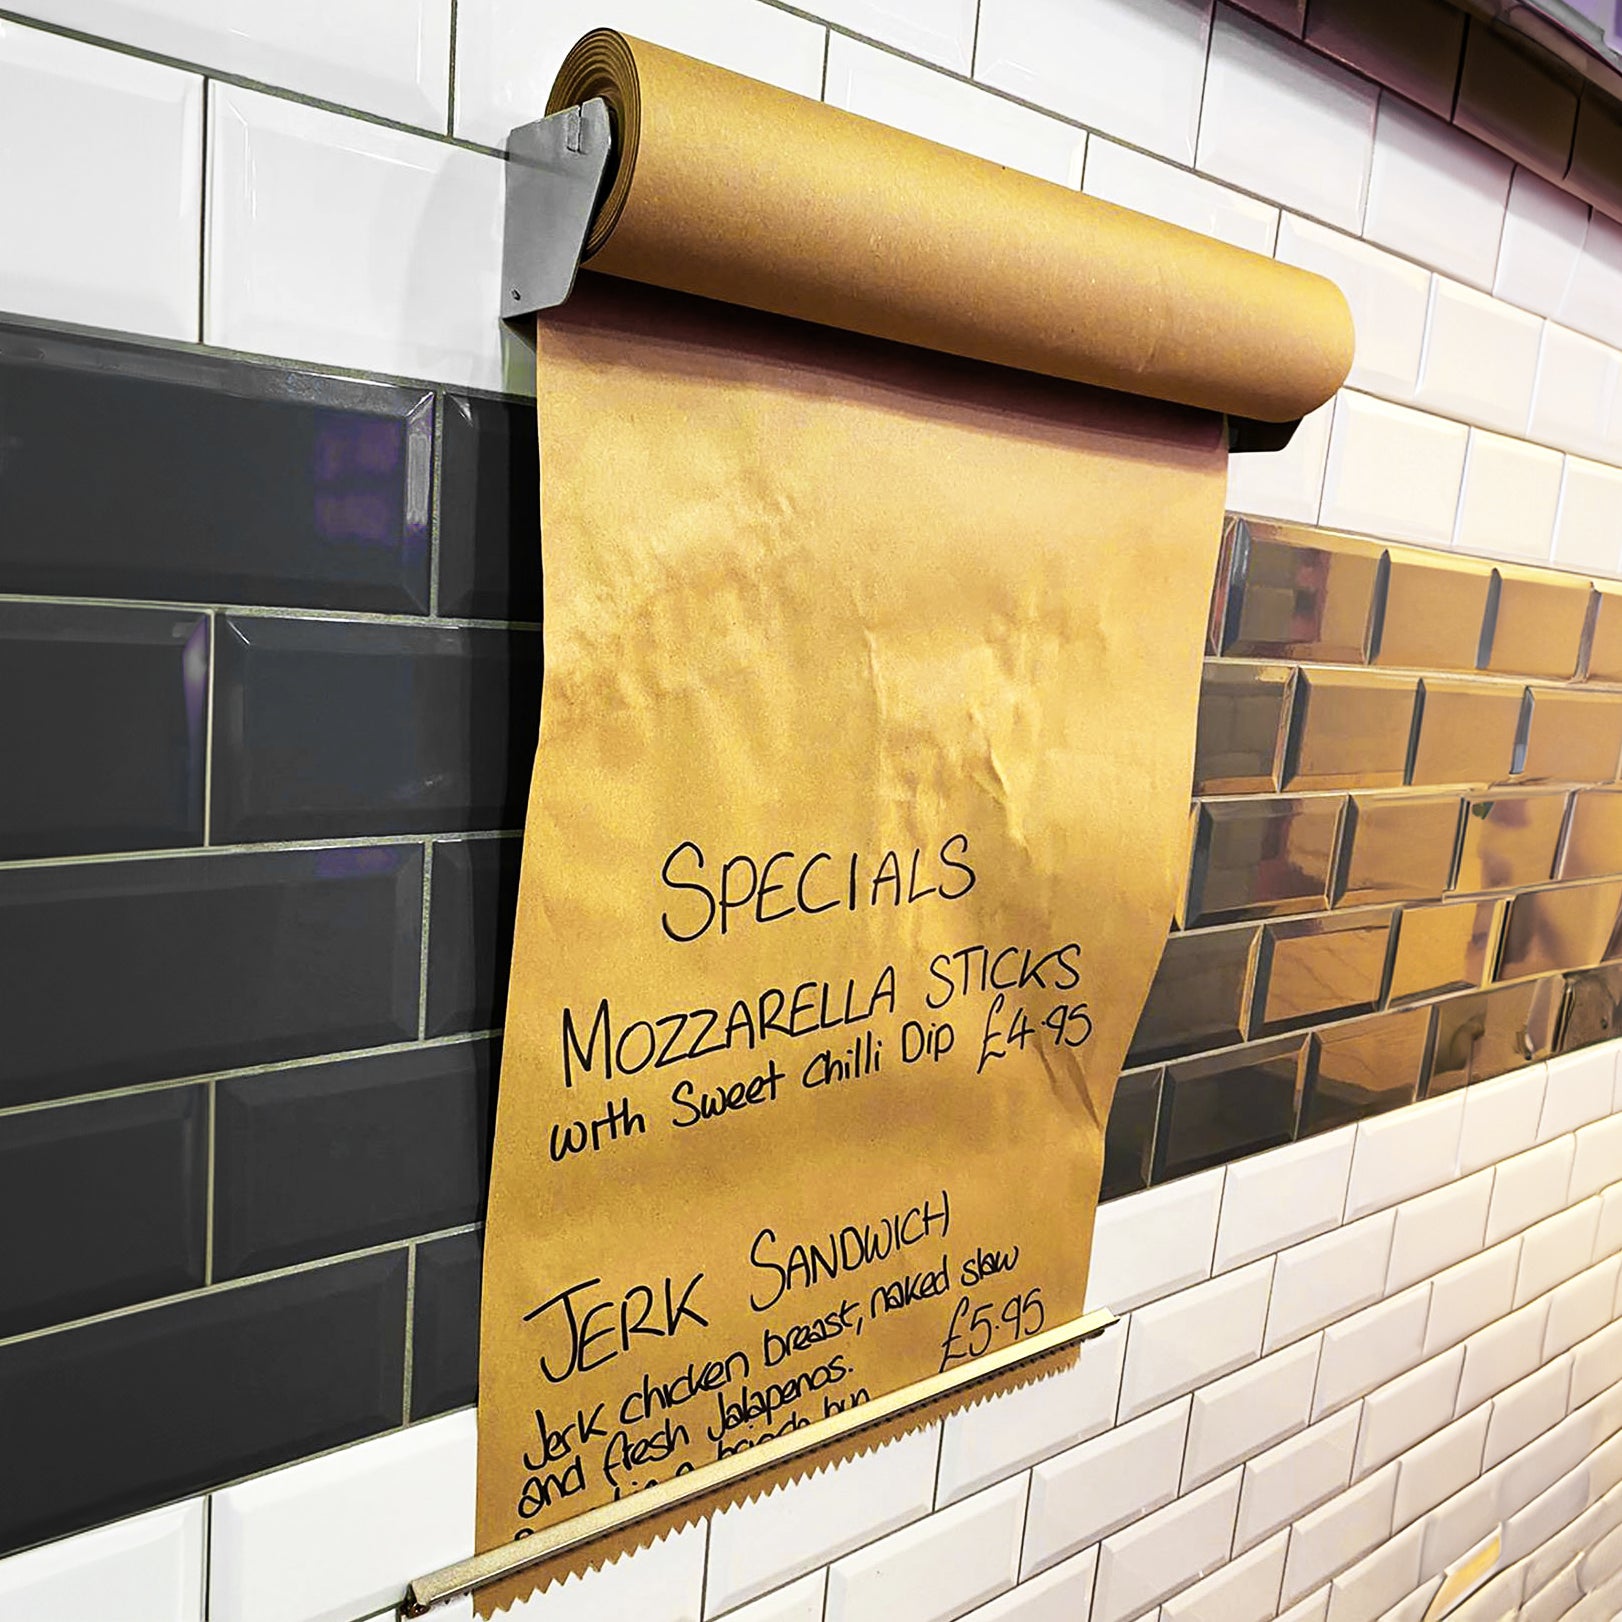 SPECIALS
MOZZARELLA STICKS
with Sweet Chilli Dip £4.95
JERK SANDWICH
Jerk chicken breast, naked slaw
and fresh Jalapenos. £5.95
in a brioch bun